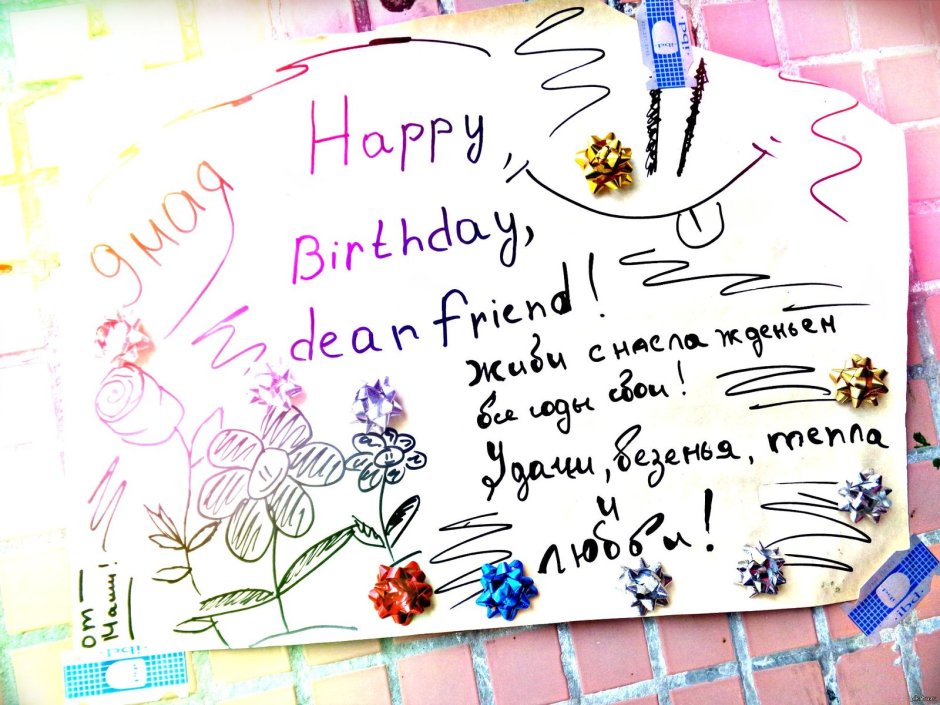 9 мая
Happy
Birthday,
dear friend!
Живи с наслажденьем
все годы свои!
Удачи, везенья, тепла
и
любви!
от
Маши!
ibd
ibd
ibd
ibd